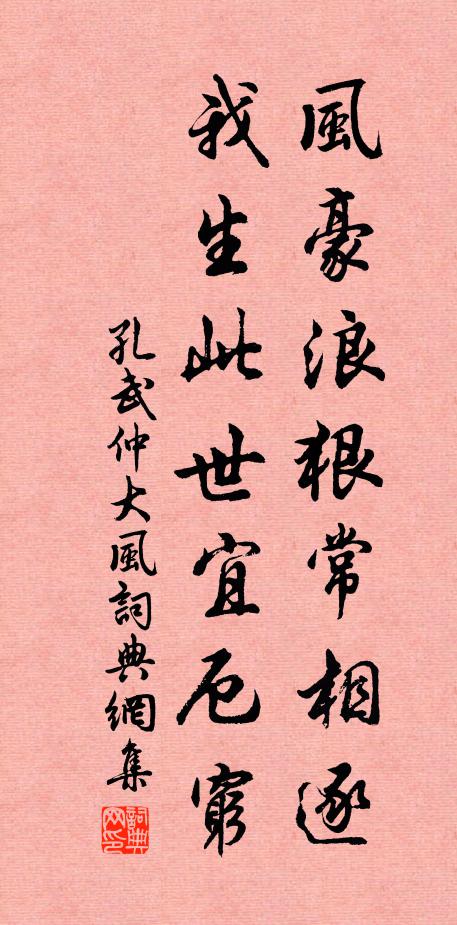 風豪浪狠常相逐
我生此世宜厄窮
孔武仲大風詞典網集
詞典網印